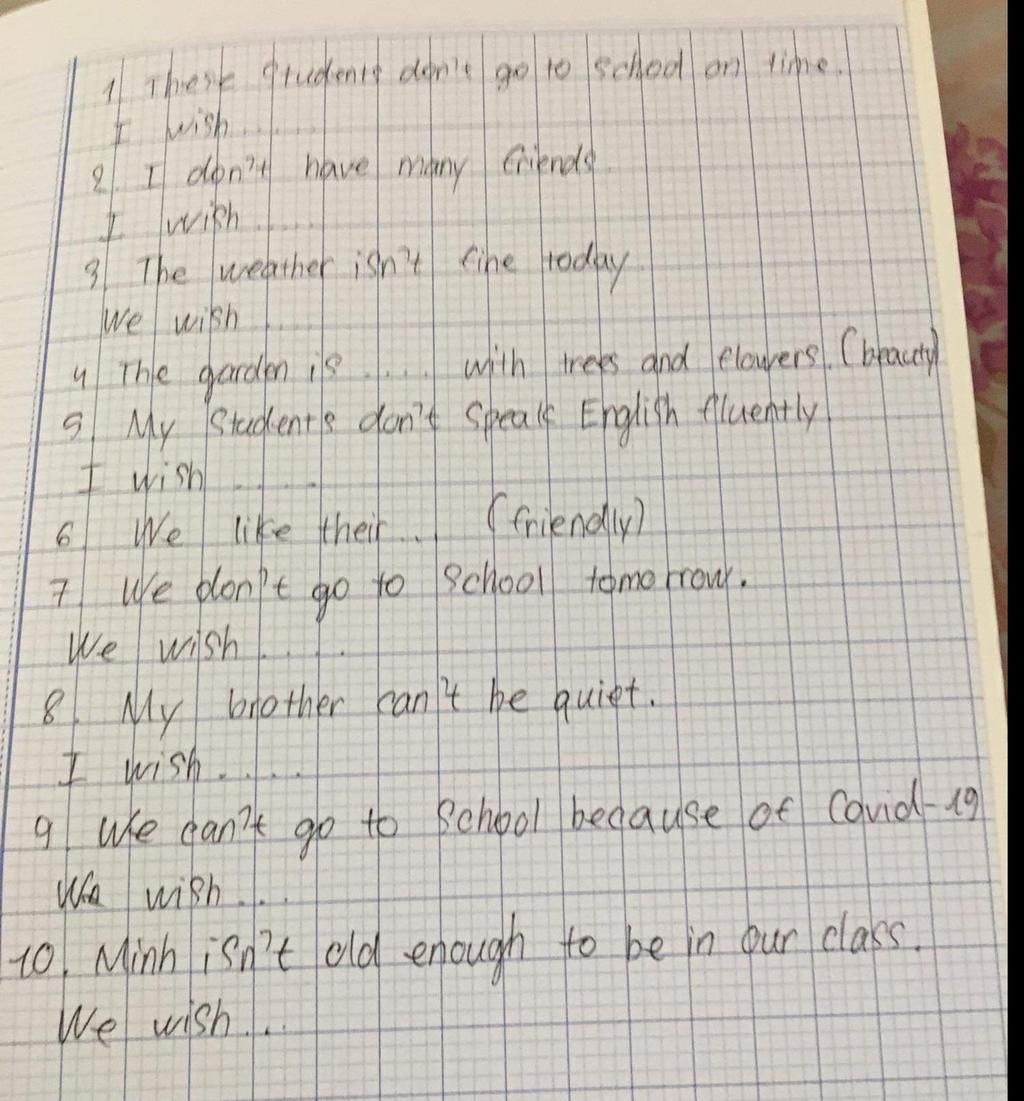 1, These students don't go to school on time.
I wish.........
2, I don't have many friends.
I wish.........
3, The weather isn't fine today.
We wish....
4, The garden is ..... with trees and flowers. (beauty)
5, My students don't speak English fluently
I wish.........
6, We like their... (friendly)
7, We don't go to school tomorrow.
We wish.....
8, My brother can't be quiet.
I wish.....
9, We can't go to school because of Covid-19
We wish...
10, Minh isn't old enough to be in our class.
We wish...